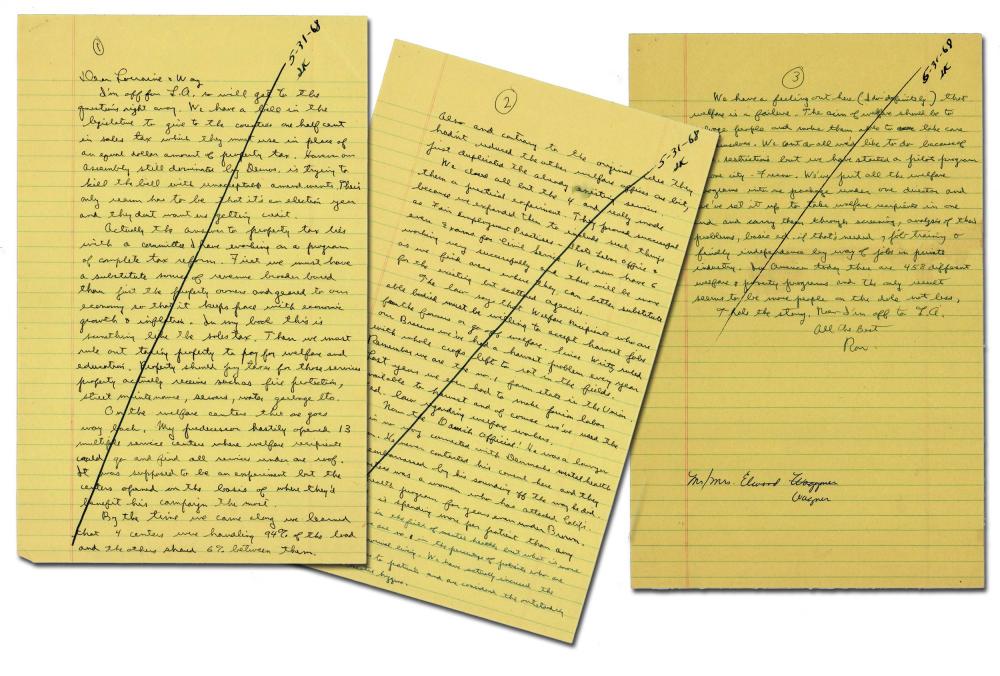 1
5-31-68
Dear Lorraine & Wag
I'm off for L.A. so will get to the
questions right away. We have a bill in the
legislature to give to the counties one half cent
in sales tax which they must use in place of
an equal dollar amount of property tax. Our
Assembly still dominated by Demos. is trying to
kill the bill with unacceptable amendments. Their
only reason has to be that it's an election year
and they don't want us getting credit.
Actually the answer to property tax lies
with a committee I have working on a program
of complete tax reform. First we must have
a substitute source of revenue broader based
than just the property owners and geared to our
economy so that it keeps pace with economic
growth & inflation. In my book this is
something like the sales tax. Then we must
rule out taxing property to pay for welfare and
education. Property should pay taxes for those services
property actually receives such as fire protection,
street maintenance, sewers, water, garbage etc.
On the welfare centers this goes
way back. My predecessor hastily opened 13
multiple service centers where welfare recipients
could go and find all services under one roof.
It was supposed to be an experiment but the
centers opened on the basis of where they'd
benefit his campaign the most.
By the time we came along we learned
that 4 centers were handling 94% of the load
and the others shared 6% between them.
2
5-31-68
Also and contrary to the original idea they
hadn't reduced the other welfare offices a bit,
just duplicated the already existing service.
We closed all but the 4 and really made
them a practical experiment. They proved successful
because we expanded them to include such things
as Fair Employment Practices - State Labor office &
even Exams for Civil Service. We now have 6
working very successfully and there will be more
as we find areas where they can better substitute
for the existing but scattered agencies.
The law says that Welfare Recipients who are
able bodied must be willing to accept harvest jobs
or go off welfare. Since Wirtz ruled
out Braceros we've had a harvest problem every year
with whole crops left to rot in the fields.
Remember we are the no. 1 farm state in the Union
Last years we even had to make prison labor
available to harvest and of course we've used the
law regarding welfare workers.
Now the "Danish Official." He was a
in no way connected with Denmark's mental health
contacted his consul here and they
embarrassed by his sounding off the way he did.
was a woman who has attacked Calif's.
health program for years even under Brown.
is spending more per patient than any
in the field of mental health but what is more
are no. 1 in the percentage of patients who are
living. We have actually increased the
to patients and are considered the outstanding
3
5-31-68
We have a feeling out here (I do definitely) that
welfare is a failure. The aim of welfare should be to
people and make them able to take care
of themselves. We can't do all we'd like to do because of
restrictions but we have started a pilot program
one city - Fresno. We've put all the welfare
programs into one package under one director and
we've set it up to take welfare recipients in one
end and carry them through screening, analysis of their
problems, basic ed. if that's needed, job training &
finally independence by way of jobs in private
industry. In America today there are 458 different
welfare & poverty programs and the only result
seems to be more people on the dole not less.
That's the story. Now I'm off to L.A.
All the Best
Ron
Mr/Mrs. Elwood Waggner
Wagner